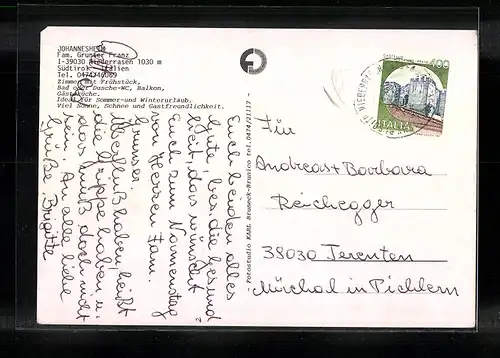 JOHANNESHEIM
Fam. Gruber Franz
I-39030 Niederrasen 1030 m
Südtirol - Italien
Tel. 0474/46069
Zimmer mit Frühstück,
Bad oder Dusche-WC, Balkon,
Gästeküche.
Ideal für Sommer-und Winterurlaub.
Viel Sonne, Schnee und Gastfreundlichkeit.
Euch beiden alles
Gute, bes. die Gesund
heit, das wünscht
Euch zum Namenstag
von Herzen Fam.
Gruber.
Überfluß haben, heißt
die Grippe haben u.
das muß doch nicht
sein. An alle liebe
Grüße Brigitte
Fotostudio KARL Bruneck-Brunico tel.0474/21117
400
ITALIA
Für
Andreas + Barbara
Reichegger
39030 Terenten
Mürchal in Pichlern